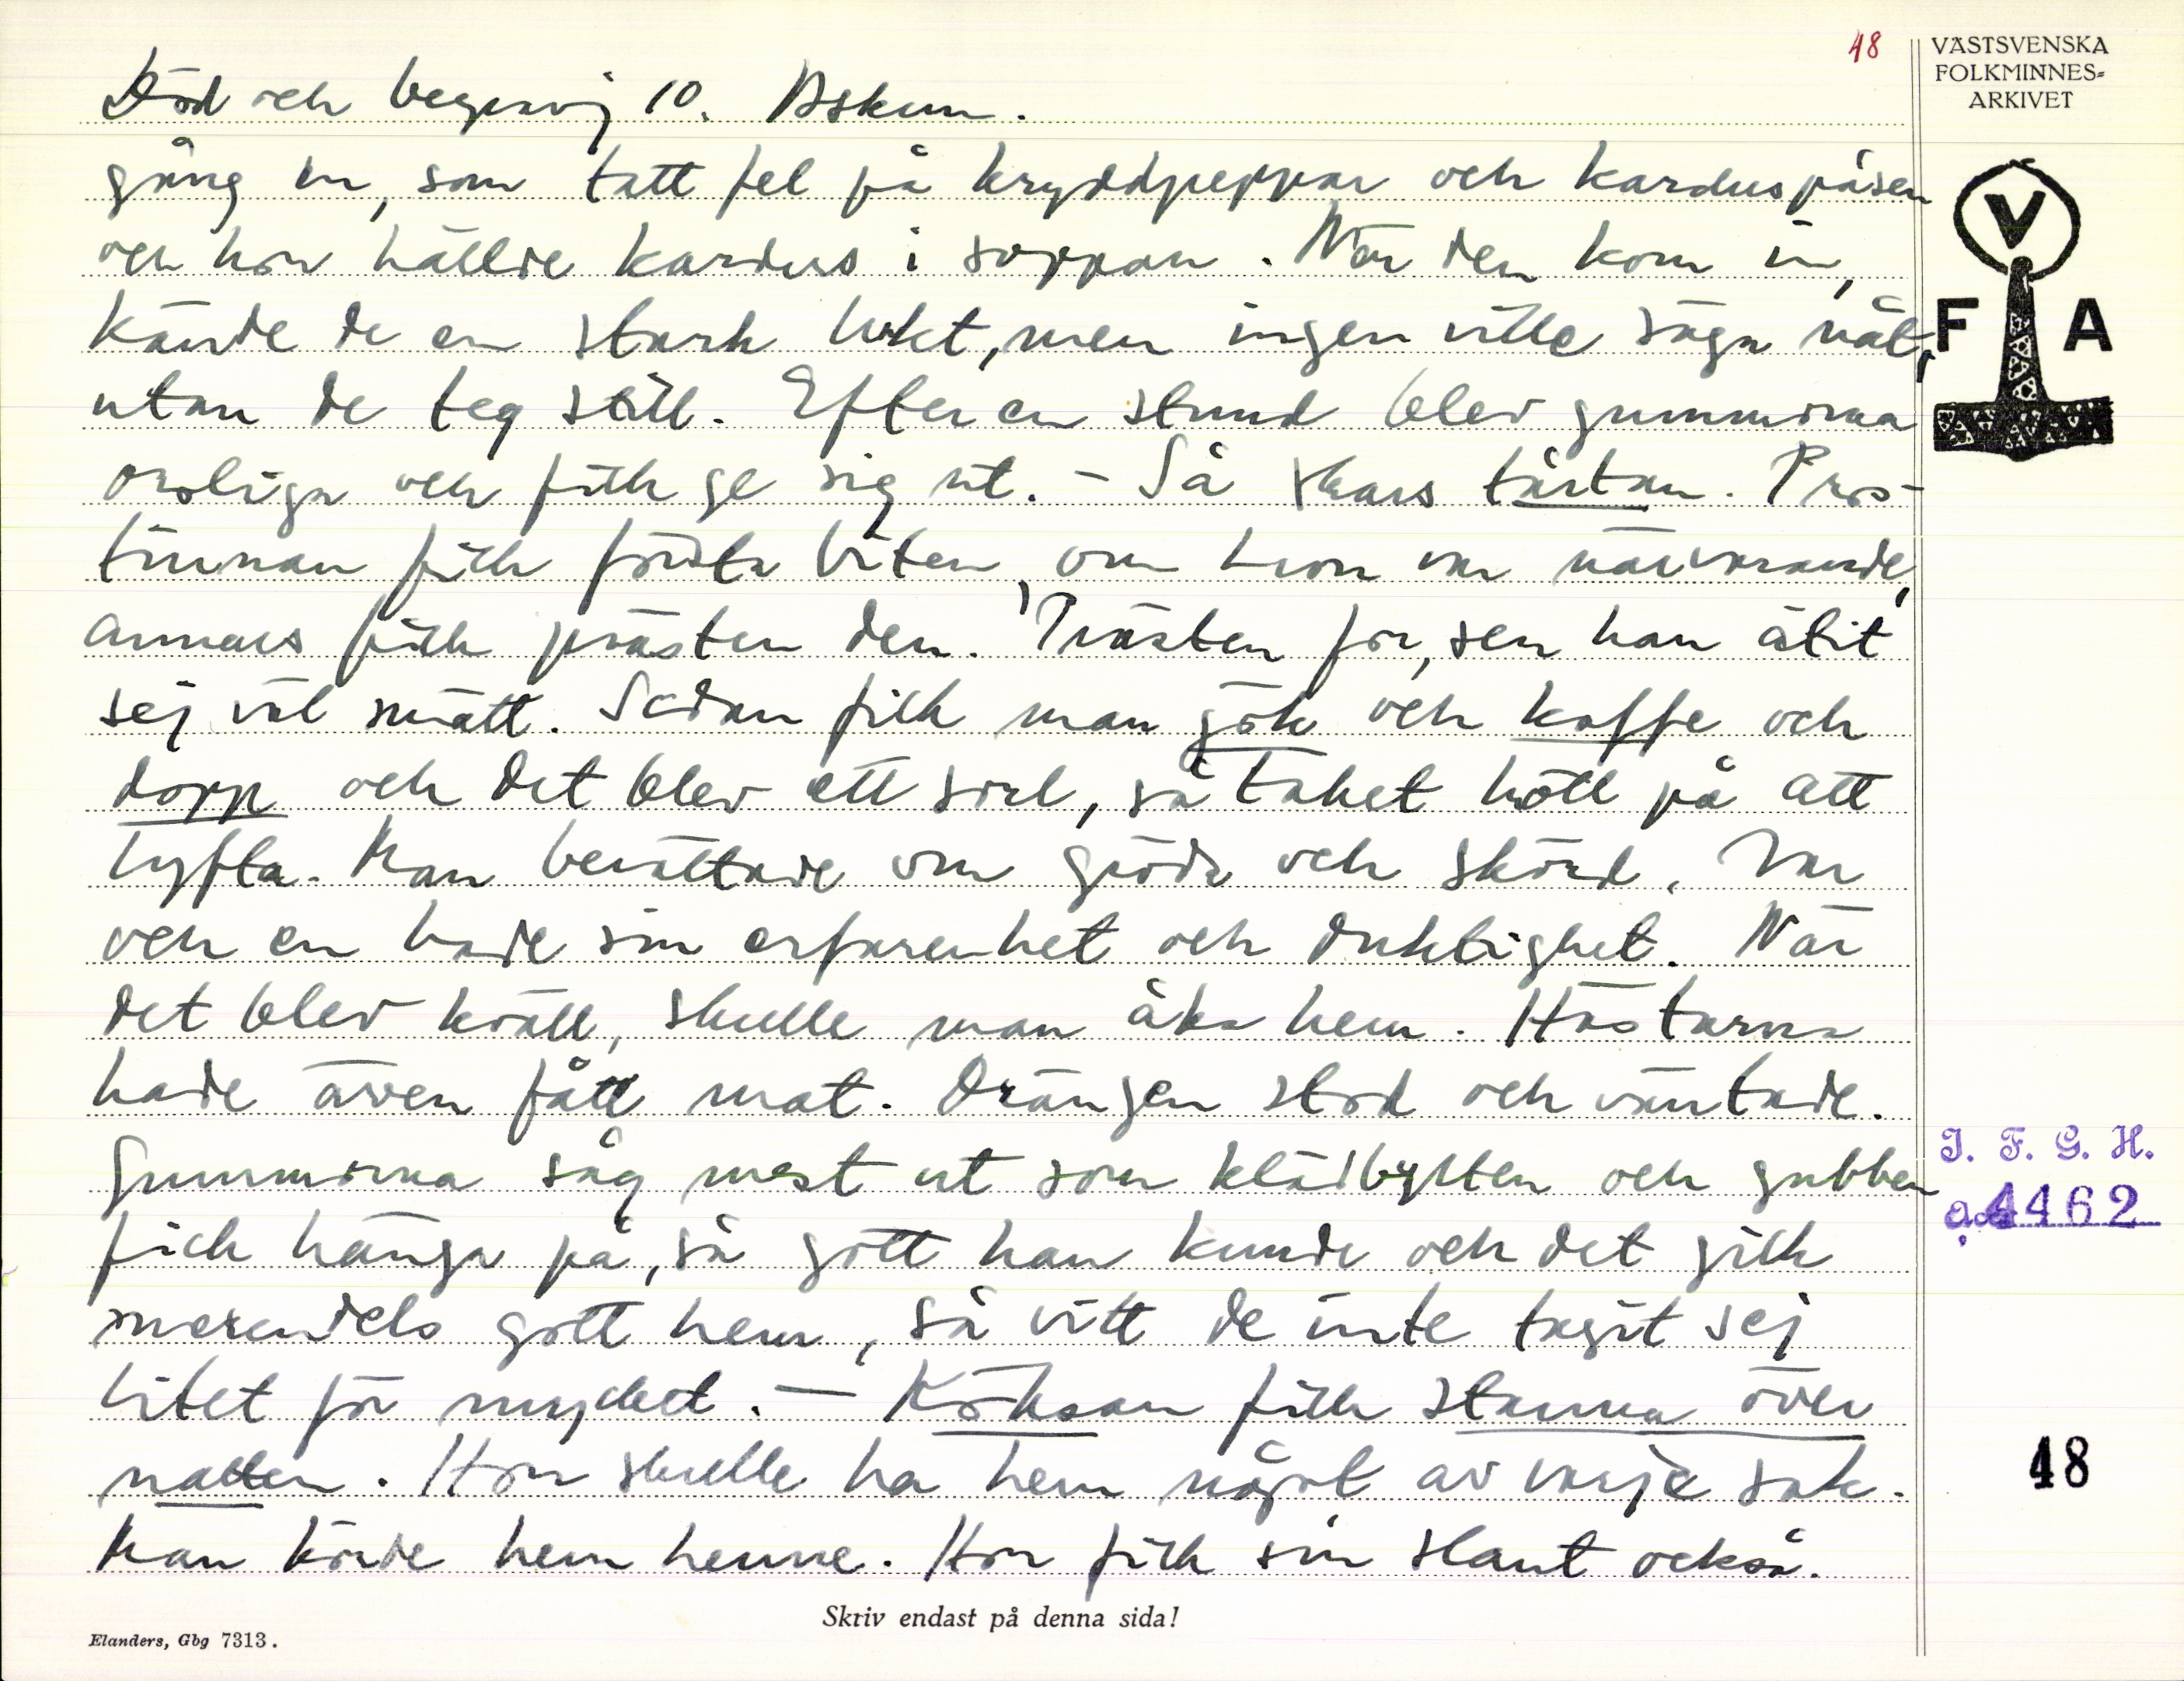 48
VÄSTSVENSKA
FOLKMINNES=
ARKIVET
Död och begravnj 10. Askum.
gång en, som tatt fel på kryddpeppar och karduspåsen
och hon hällde kardus i soppan. När den kom in,
kände de en stark lukt, men ingen ville säga nåt,
utan de teg still. Efter en stund blev gummorna
oroliga och fick ge sig ut. - Så skars tårtan. Pros-
tinnan fick första biten, om hon var närvarande,
annars fick prästen den. Prästen for, sen han ätit
sej väl mätt. Sedan fick man gök och kaffe och
dopp och det blev ett sorl, så taket höll på att
lyfta. Man berättade om gröda och skörd. Var
och en hade sin erfarenhet och duktighet. När
det blev kväll, skulle man åka hem. Hästarna
hade även fått mat. Drängen stod och väntade.
Gummorna såg mest ut som klädbylten och gubben
fick hänga på, så gott han kunde och det gick
merendels gott hem, så vitt de inte tagit sej
litet för mycket. — Köksan fick stanna över
natten. Hon skulle ha hem något av varje sak.
Man körde hem henne. Hon fick sin slant också.
V
F A
I. F. G. H.
acc 4462
48
Skriv endast på denna sida!
Elanders, Gbg 7313.